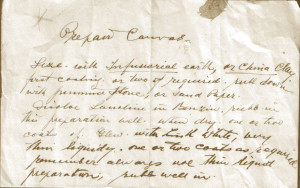 Prepair Canvas.
Size with Infusorial earth, or China Clay,
first coating, or two if required, rub down
with pummice stone, or sand paper.
Disolve Lanoline in Benzin, rubb in
this preparation well. when dry one or two
coats of Glew. with Zink White, very
thin liquidy. one or two coats as required
remember always use thin liquid
preparation, rubb well in.